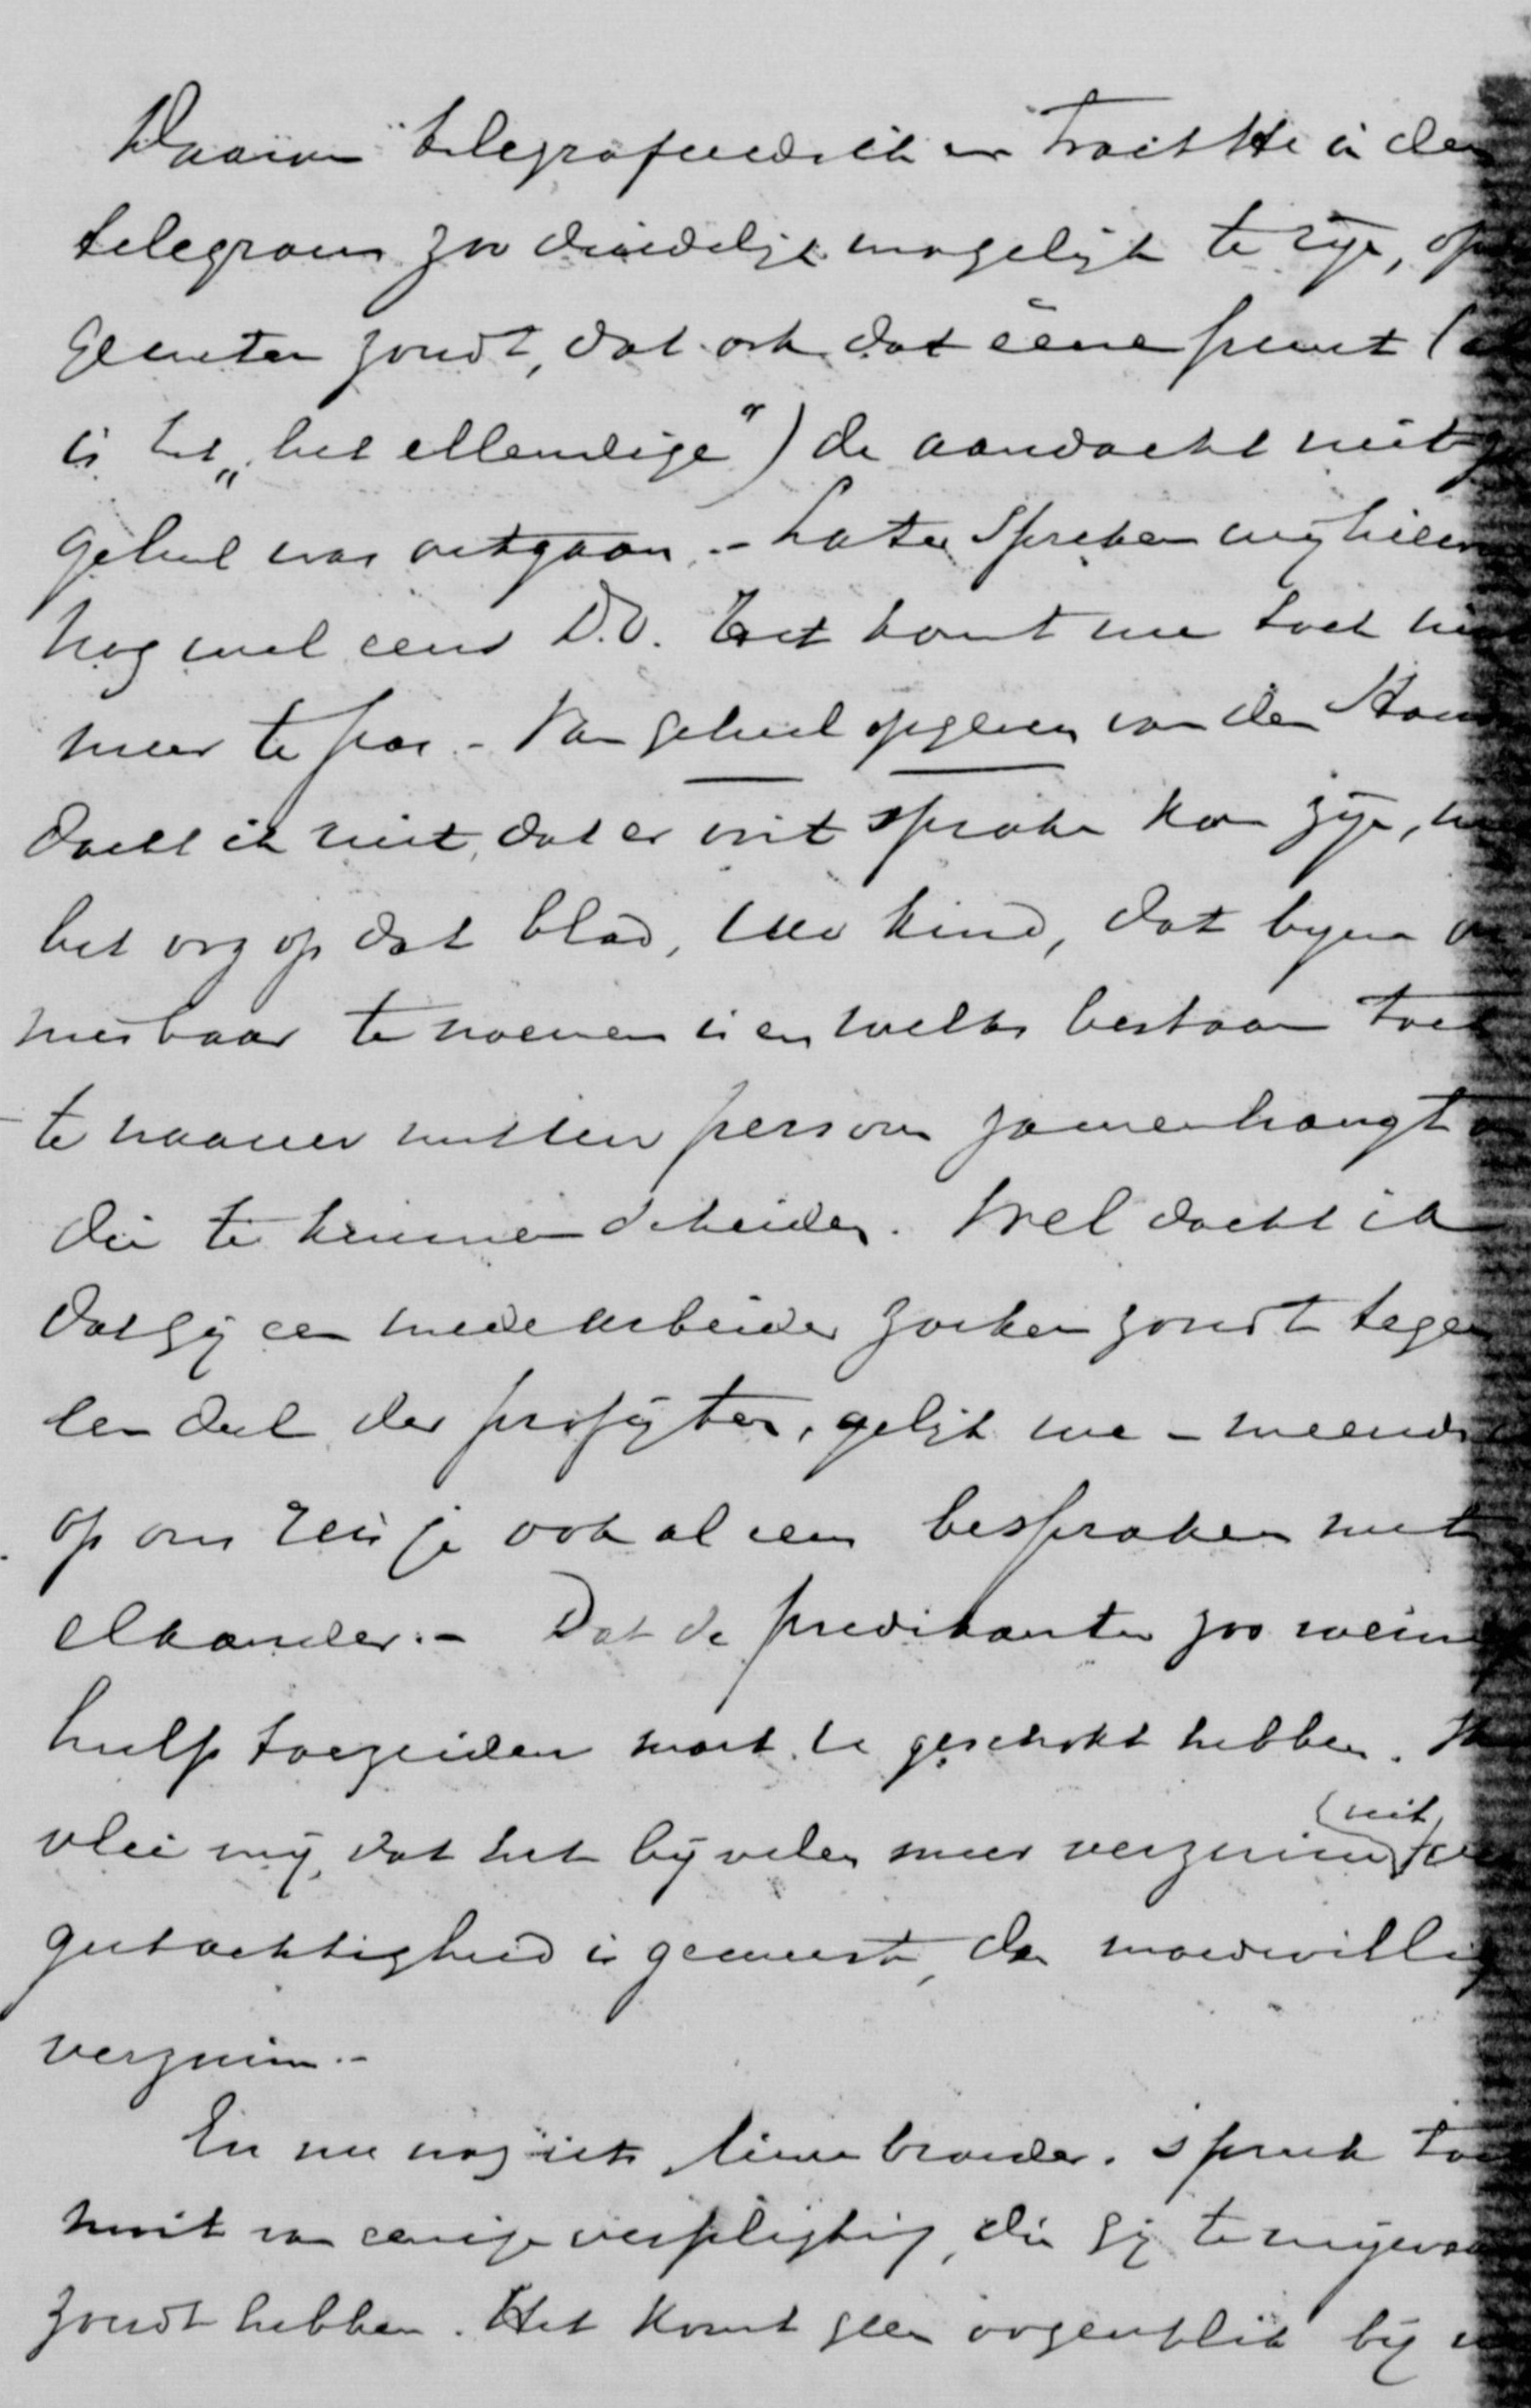 Daarom telegrafeerde ik en trachtte in den
telegram zoo duidelijk mogelijk te zijn, op
gij weten zoudt, dat ook dat ééne punt (
is het „het ellendige”) de aandacht niet
geheel was ontgaan. - Later spreken wij hierover
nog wel eens D.V. Het komt nu toch niet
meer te pas. - Van geheel opgeven van den Stand
dacht ik niet, dat er ooit sprake kon zijn,
het oog op dat blad, Uw kind, dat bijna on
misbaar te noemen is en welks bestaan toch
te nauw met Uw persoon zamenhangt
die te kunnen scheiden. Wel dacht ik
dat gij een medearbeider zoeken zoudt tegen
een deel der profijten, gelijk we - meende
op ons reisje ook al eens bespraken met
elkander. - Dat de predikanten zoo weinig
hulp toezeiden moet U geschokt hebben. Ik
vlei mij, dat het bij velen meer verzuim (uit
geestachtigheid is geweest, dan moedwillig
verzuim. -
En nu nog iets, lieve broeder. Spreek toch
nooit van eenige verpligting, die gij te mijwaarts
zoudt hebben. Het komt geen oogenblik bij